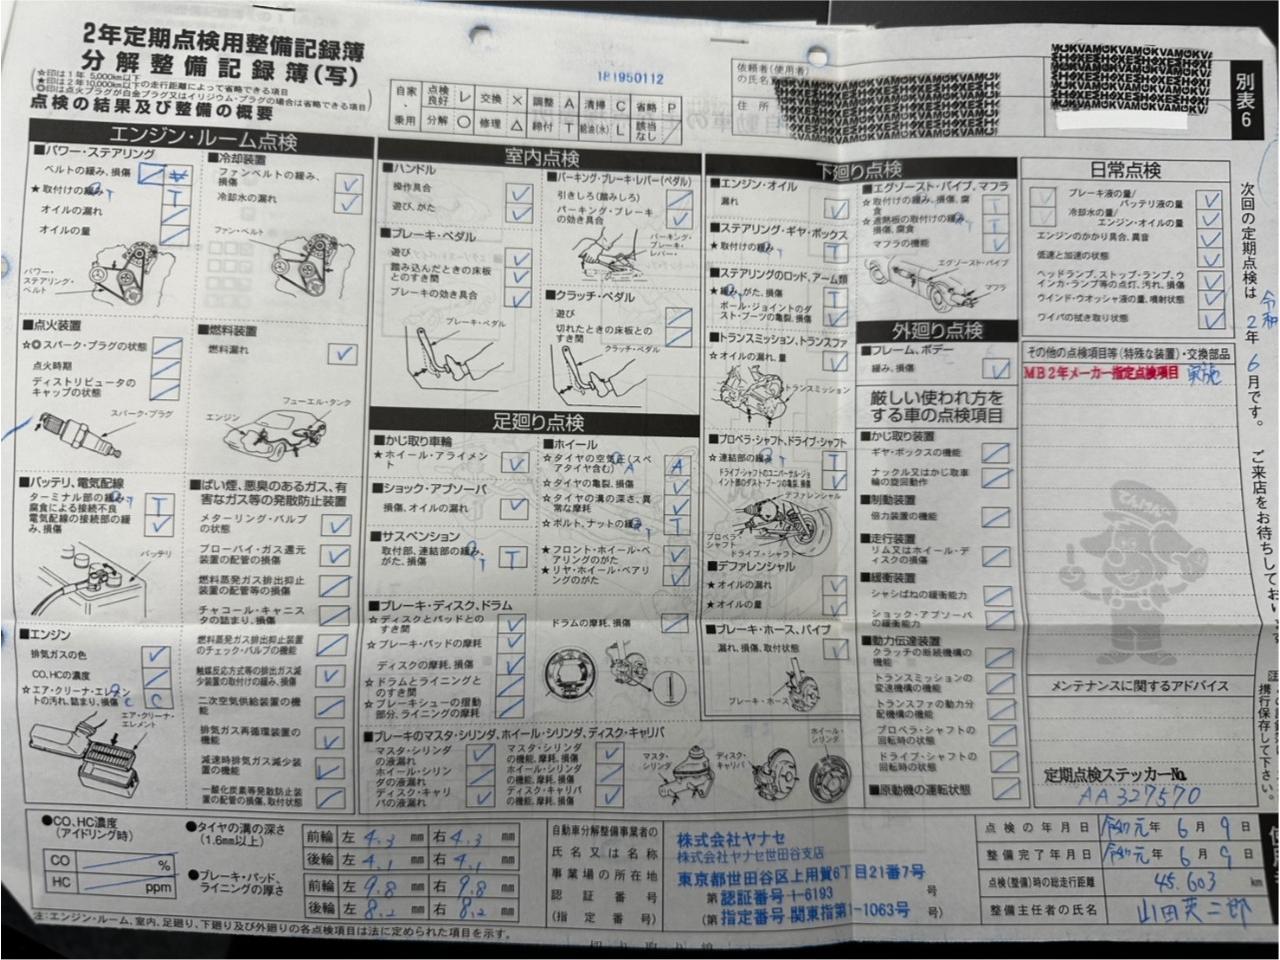 2年定期点検用整備記録簿
分解整備記録簿(写)
☆印は1年 5,000km以下
★印は2年10,000km以下の走行距離によって省略できる項目
◎印は点火プラグが白金プラグ又はイリジウム・プラグの場合は省略できる項目
点検の結果及び整備の概要
181950112
自家・乗用
点検良好 レ 交換 × 調整 A 清掃 C 省略 P
分解 ○ 修理 △ 締付 T 給油(水) L 該当なし ／
依頼者(使用者)の氏名
住所
別表6
エンジン・ルーム点検
■パワー・ステアリング
ベルトの緩み、損傷
★取付けの緩み T
オイルの漏れ
オイルの量
パワー・ステアリング・ベルト
■冷却装置
ファンベルトの緩み、損傷
冷却水の漏れ
ファン・ベルト
■点火装置
☆◎スパーク・プラグの状態
点火時期
ディストリビュータのキャップの状態
スパーク・プラグ
■燃料装置
燃料漏れ
フューエル・タンク
エンジン
■バッテリ、電気配線
ターミナル部の緩み、腐食による接続不良 T
電気配線の接続部の緩み、損傷
バッテリ
■ばい煙、悪臭のあるガス、有害なガス等の発散防止装置
メターリング・バルブの状態
ブローバイ・ガス還元装置の配管の損傷
燃料蒸発ガス排出抑止装置の配管等の損傷
チャコール・キャニスタの詰まり、損傷
燃料蒸発ガス排出抑止装置のチェック・バルブの機能
触媒反応方式等の排出ガス減少装置の取付けの緩み、損傷
二次空気供給装置の機能
排気ガス再循環装置の機能
減速時排気ガス減少装置の機能
一酸化炭素等発散防止装置の配管の損傷、取付状態
■エンジン
排気ガスの色
CO、HCの濃度
☆エア・クリーナ・エレメントの汚れ、詰まり、損傷 C
エア・クリーナ・エレメント
室内点検
■ハンドル
操作具合
遊び、がた
■ブレーキ・ペダル
遊び
踏み込んだときの床板とのすき間
ブレーキの効き具合
ブレーキ・ペダル
■パーキング・ブレーキ・レバー(ペダル)
引きしろ(踏みしろ)
パーキング・ブレーキの効き具合
パーキング・ブレーキ・レバー
■クラッチ・ペダル
遊び
切れたときの床板とのすき間
クラッチ・ペダル
足廻り点検
■かじ取り車輪
★ホイール・アライメント
■ショック・アブソーバ
損傷、オイルの漏れ
■サスペンション
取付部、連結部の緩み、がた、損傷 T
■ホイール
☆タイヤの空気圧(スペアタイヤ含む) A
☆タイヤの亀裂、損傷
☆タイヤの溝の深さ、異常な摩耗
☆ボルト、ナットの緩み T
★フロント・ホイール・ベアリングのがた
★リヤ・ホイール・ベアリングのがた
■ブレーキ・ディスク、ドラム
☆ディスクとパッドとのすき間
☆ブレーキ・パッドの摩耗
ディスクの摩耗、損傷
☆ドラムとライニングとのすき間
☆ブレーキシューの摺動部分、ライニングの摩耗
ドラムの摩耗、損傷
■ブレーキのマスタ・シリンダ、ホイール・シリンダ、ディスク・キャリパ
マスタ・シリンダの液漏れ
ホイール・シリンダの液漏れ
ディスク・キャリパの液漏れ
マスタ・シリンダの機能、摩耗、損傷
ホイール・シリンダの機能、摩耗、損傷
ディスク・キャリパの機能、摩耗、損傷
マスタ・シリンダ
ディスク・キャリパ
ホイール・シリンダ
下廻り点検
■エンジン・オイル
漏れ
■ステアリング・ギヤ・ボックス
★取付けの緩み T
■ステアリングのロッド、アーム類
★緩み、がた、損傷 T
ボール・ジョイントのダスト・ブーツの亀裂、損傷
■トランスミッション、トランスファ
☆オイルの漏れ、量
トランスミッション
■プロペラ・シャフト、ドライブ・シャフト
☆連結部の緩み T
ドライブ・シャフトのユニバーサル・ジョイント部のダスト・ブーツの亀裂、損傷
デファレンシャル
プロペラ・シャフト
ドライブ・シャフト
■デファレンシャル
★オイルの漏れ
★オイルの量
■ブレーキ・ホース、パイプ
漏れ、損傷、取付状態
ブレーキ・ホース
■エグゾースト・パイプ、マフラ
☆取付けの緩み、損傷、腐食 T
☆遮熱板の取付けの緩み、損傷、腐食 T
マフラの機能
エグゾースト・パイプ
マフラ
外廻り点検
■フレーム、ボデー
緩み、損傷
厳しい使われ方をする車の点検項目
■かじ取り装置
ギヤ・ボックスの機能
ナックル又はかじ取車輪の旋回動作
■制動装置
倍力装置の機能
■走行装置
リム又はホイール・ディスクの損傷
■緩衝装置
シャシばねの緩衝能力
ショック・アブソーバの緩衝能力
■動力伝達装置
クラッチの断続機構の機能
トランスミッションの変速機構の機能
トランスファの動力分配機構の機能
プロペラ・シャフトの回転時の状態
ドライブ・シャフトの回転時の状態
■原動機の運転状態
日常点検
ブレーキ液の量/バッテリ液の量
冷却水の量/エンジン・オイルの量
エンジンのかかり具合、異音
低速と加速の状態
ヘッドランプ、ストップ・ランプ、ウインカ・ランプ等の点灯、汚れ、損傷
ウインド・ウオッシャ液の量、噴射状態
ワイパの拭き取り状態
その他の点検項目等(特殊な装置)・交換部品
MB2年メーカー指定点検項目 実施
てんけんくん
メンテナンスに関するアドバイス
定期点検ステッカーNo.
AA327570
次回の定期点検は 令和2年6月です。ご来店をお待ちしており
携行保存して下さい。
●CO、HC濃度(アイドリング時)
CO %
HC ppm
●タイヤの溝の深さ(1.6mm以上)
前輪 左 4.3 mm 右 4.3 mm
後輪 左 4.1 mm 右 4.1 mm
●ブレーキ・パッド、ライニングの厚さ
前輪 左 9.8 mm 右 9.8 mm
後輪 左 8.2 mm 右 8.2 mm
自動車分解整備事業者の氏名又は名称
事業場の所在地
認証番号
(指定番号)
株式会社ヤナセ
株式会社ヤナセ世田谷支店
東京都世田谷区上用賀6丁目21番7号
第 認証番号 1-6193 号
(第 指定番号 関東指第1-1063号 号)
点検の年月日 令和元年 6月 9日
整備完了年月日 令和元年 6月 9日
点検(整備)時の総走行距離 45,603 km
整備主任者の氏名 山田英二郎
注:エンジン・ルーム、室内、足廻り、下廻り及び外廻りの各点検項目は法に定められた項目を示す。
切り取り線